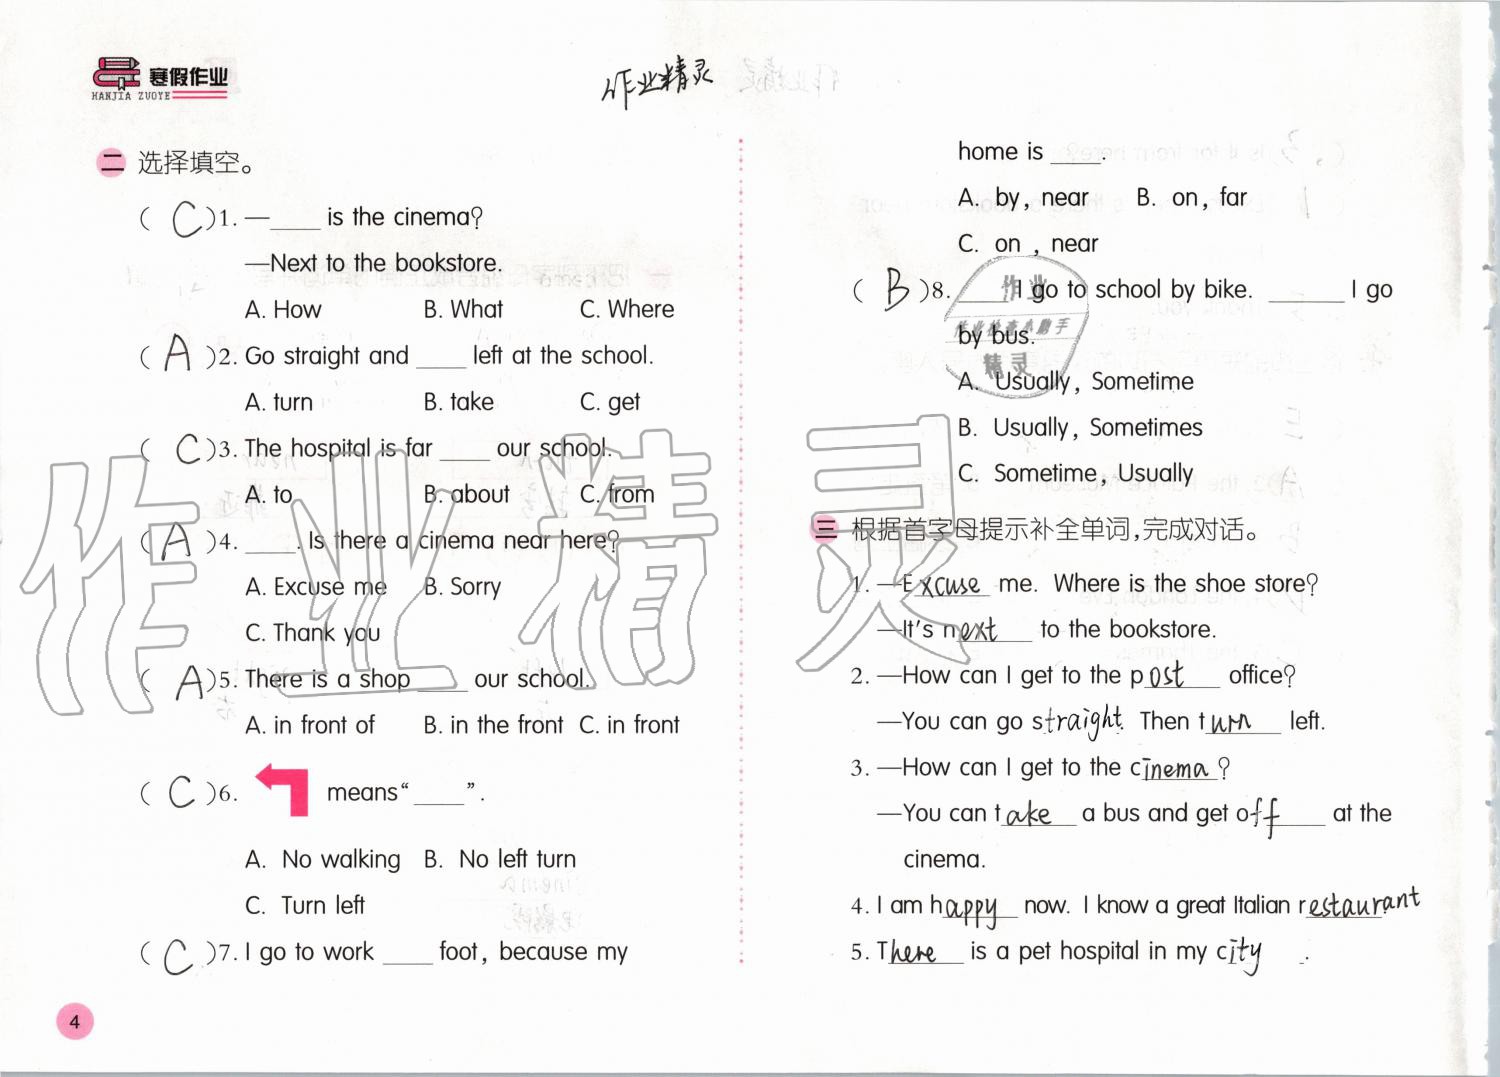 寒假作业
HANJIA ZUOYE
作业精灵
二 选择填空。
( C )1. —____ is the cinema?
—Next to the bookstore.
A. How B. What C. Where
( A )2. Go straight and ____ left at the school.
A. turn B. take C. get
( C )3. The hospital is far ____ our school.
A. to B. about C. from
( A )4. ____. Is there a cinema near here?
A. Excuse me B. Sorry
C. Thank you
( A )5. There is a shop ____ our school.
A. in front of B. in the front C. in front
( C )6. means“____”.
A. No walking B. No left turn
C. Turn left
( C )7. I go to work ____ foot, because my
4
home is ____.
A. by, near B. on, far
C. on , near
( B )8. ____ I go to school by bike. ____ I go
by bus.
A. Usually, Sometime
B. Usually, Sometimes
C. Sometime, Usually
作业
作业检查小助手
精灵
三 根据首字母提示补全单词,完成对话。
1. —Excuse me. Where is the shoe store?
—It's next to the bookstore.
2. —How can I get to the post office?
—You can go straight. Then turn left.
3. —How can I get to the cinema?
—You can take a bus and get off at the
cinema.
4. I am happy now. I know a great Italian restaurant.
5. There is a pet hospital in my city.
作业精灵